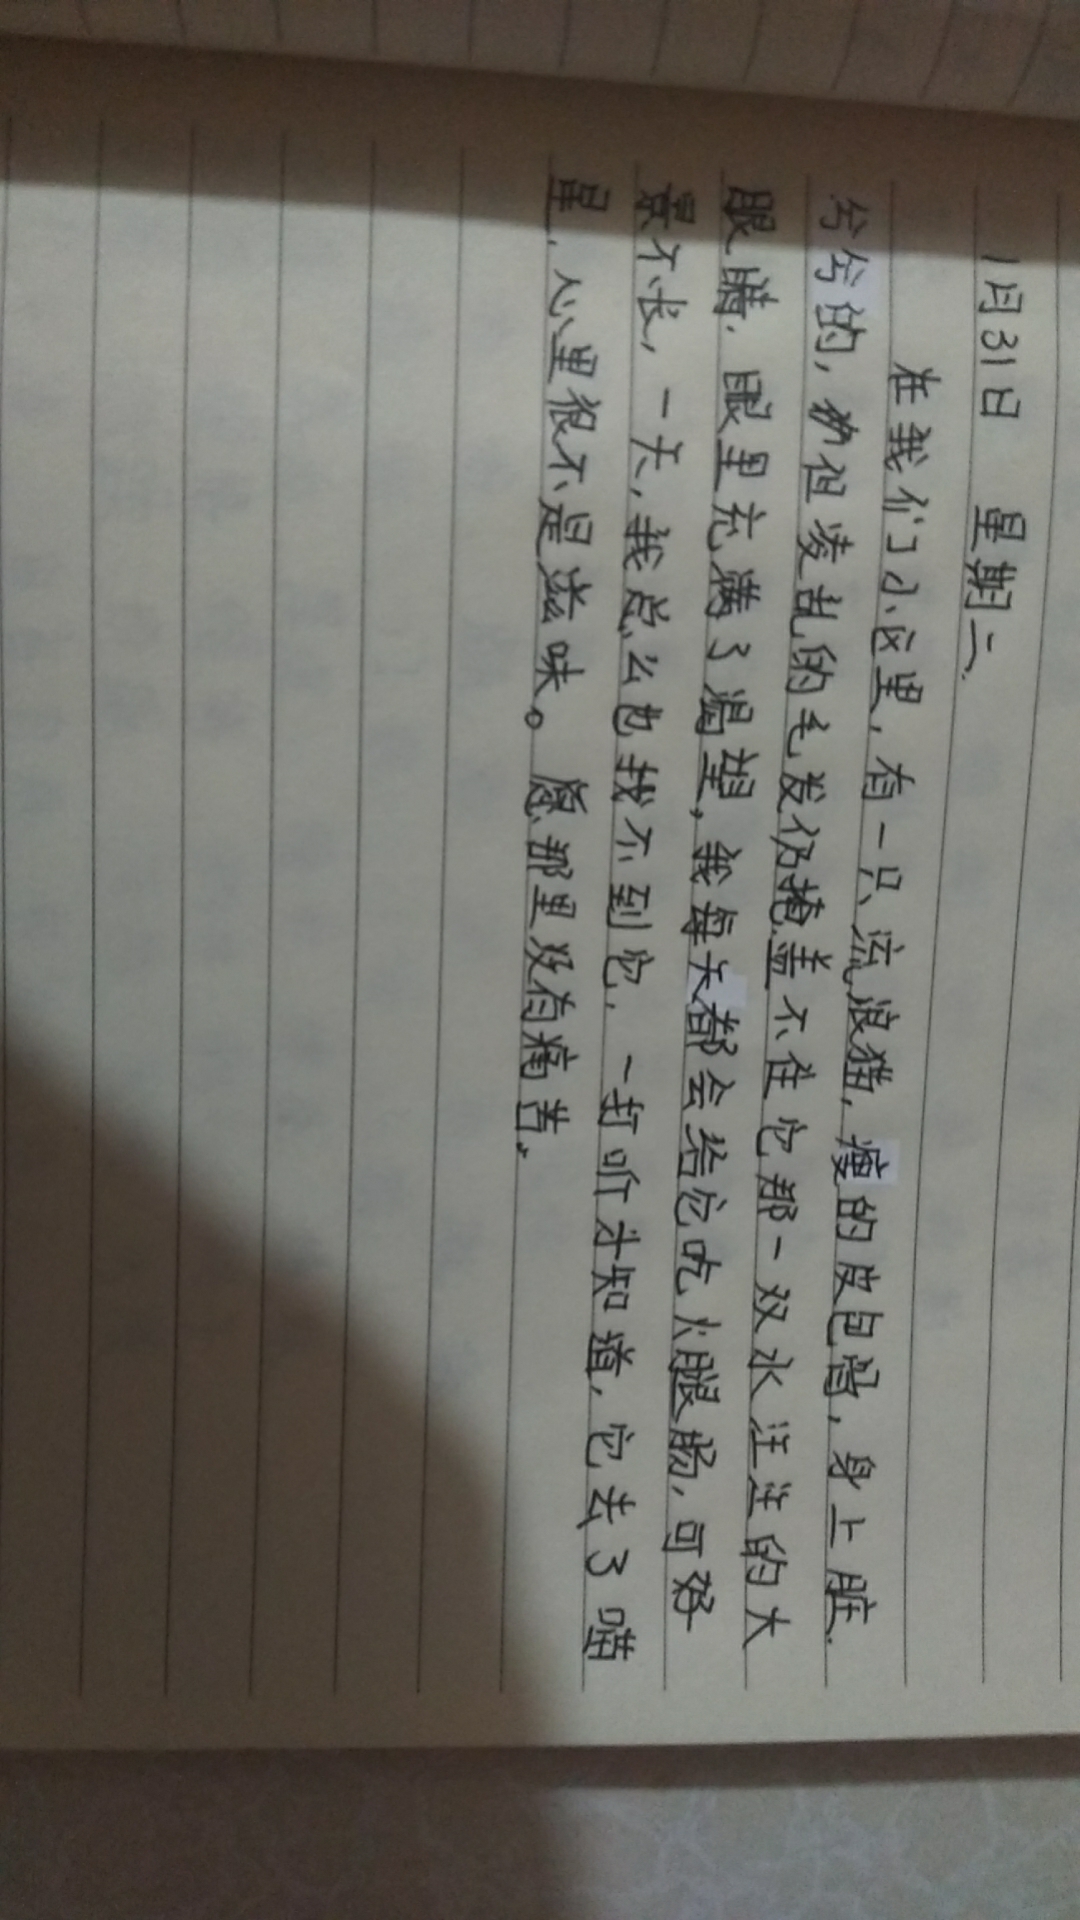 1月31日 星期二
在我们小区里,有一只流浪猫,瘦的皮包骨,身上脏
兮兮的,但凌乱的毛发仍掩盖不住它那一双水汪汪的大
眼睛,眼里充满了渴望,我每天都会给它吃火腿肠,可好
景不长,一天,我怎么也找不到它,一打听才知道,它去了喵
星,心里很不是滋味。愿那里没有痛苦。